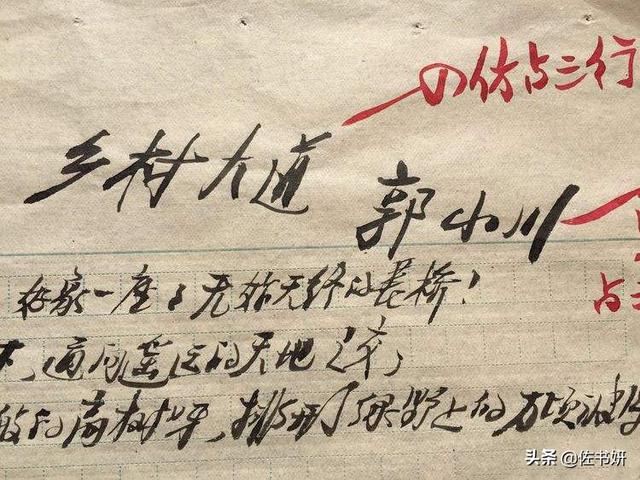 四仿占三行
乡村大道
郭小川
占三
好象一座々无始无终的长桥!
下,通向遥远的天地之交;
般的高树呀,排开了绿野上的万顷波
头条 @佐书妍